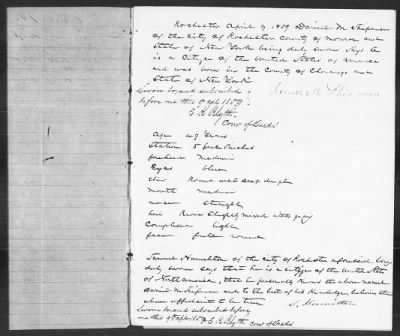 Rochester April 9 1859 Daniel M Shipman
of the City of Rochester County of Monroe and
State of New York being duly sworn says he
is a Citizen of the United States of America
and was born in the County of Chenango and
State of New York
Sworn to and subscribed
before me this 9 Apl 1859
Daniel M Shipman
E K Blyth
Com of Deeds
Age 49 Years
Stature 5 feet inches
forehead Medium
Eyes blue
chin Round with deep dimple
mouth medium
nose Straight
hair Brown Slightly mixed with gray
Complexion light
face full round
Samuel Hamilton of the City of Rochester aforesaid being
duly sworn says that he is a citizen of the United States
of North America, that he personally knows the above named
Daniel M Shipman and to the best of his knowledge believes the
above affidavit to be true
S. Hamilton
Sworn to and subscribed before
me this 9 Apl 1859
E K Blyth Com of Deeds